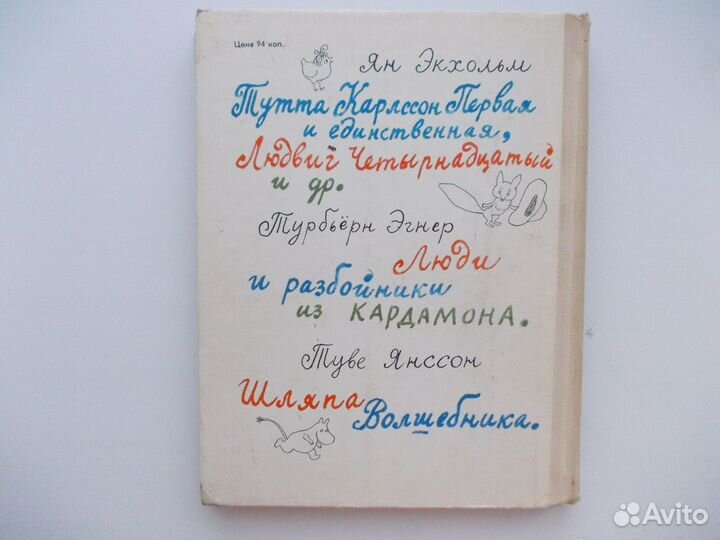 Цена 94 коп.
Ян Экхольм
Тутта Карлссон Первая
и единственная,
Людвиг Четырнадцатый
и др.
Турбьёрн Эгнер
Люди
и разбойники
из КАРДАМОНА.
Туве Янссон
Шляпа
Волшебника.
Avito